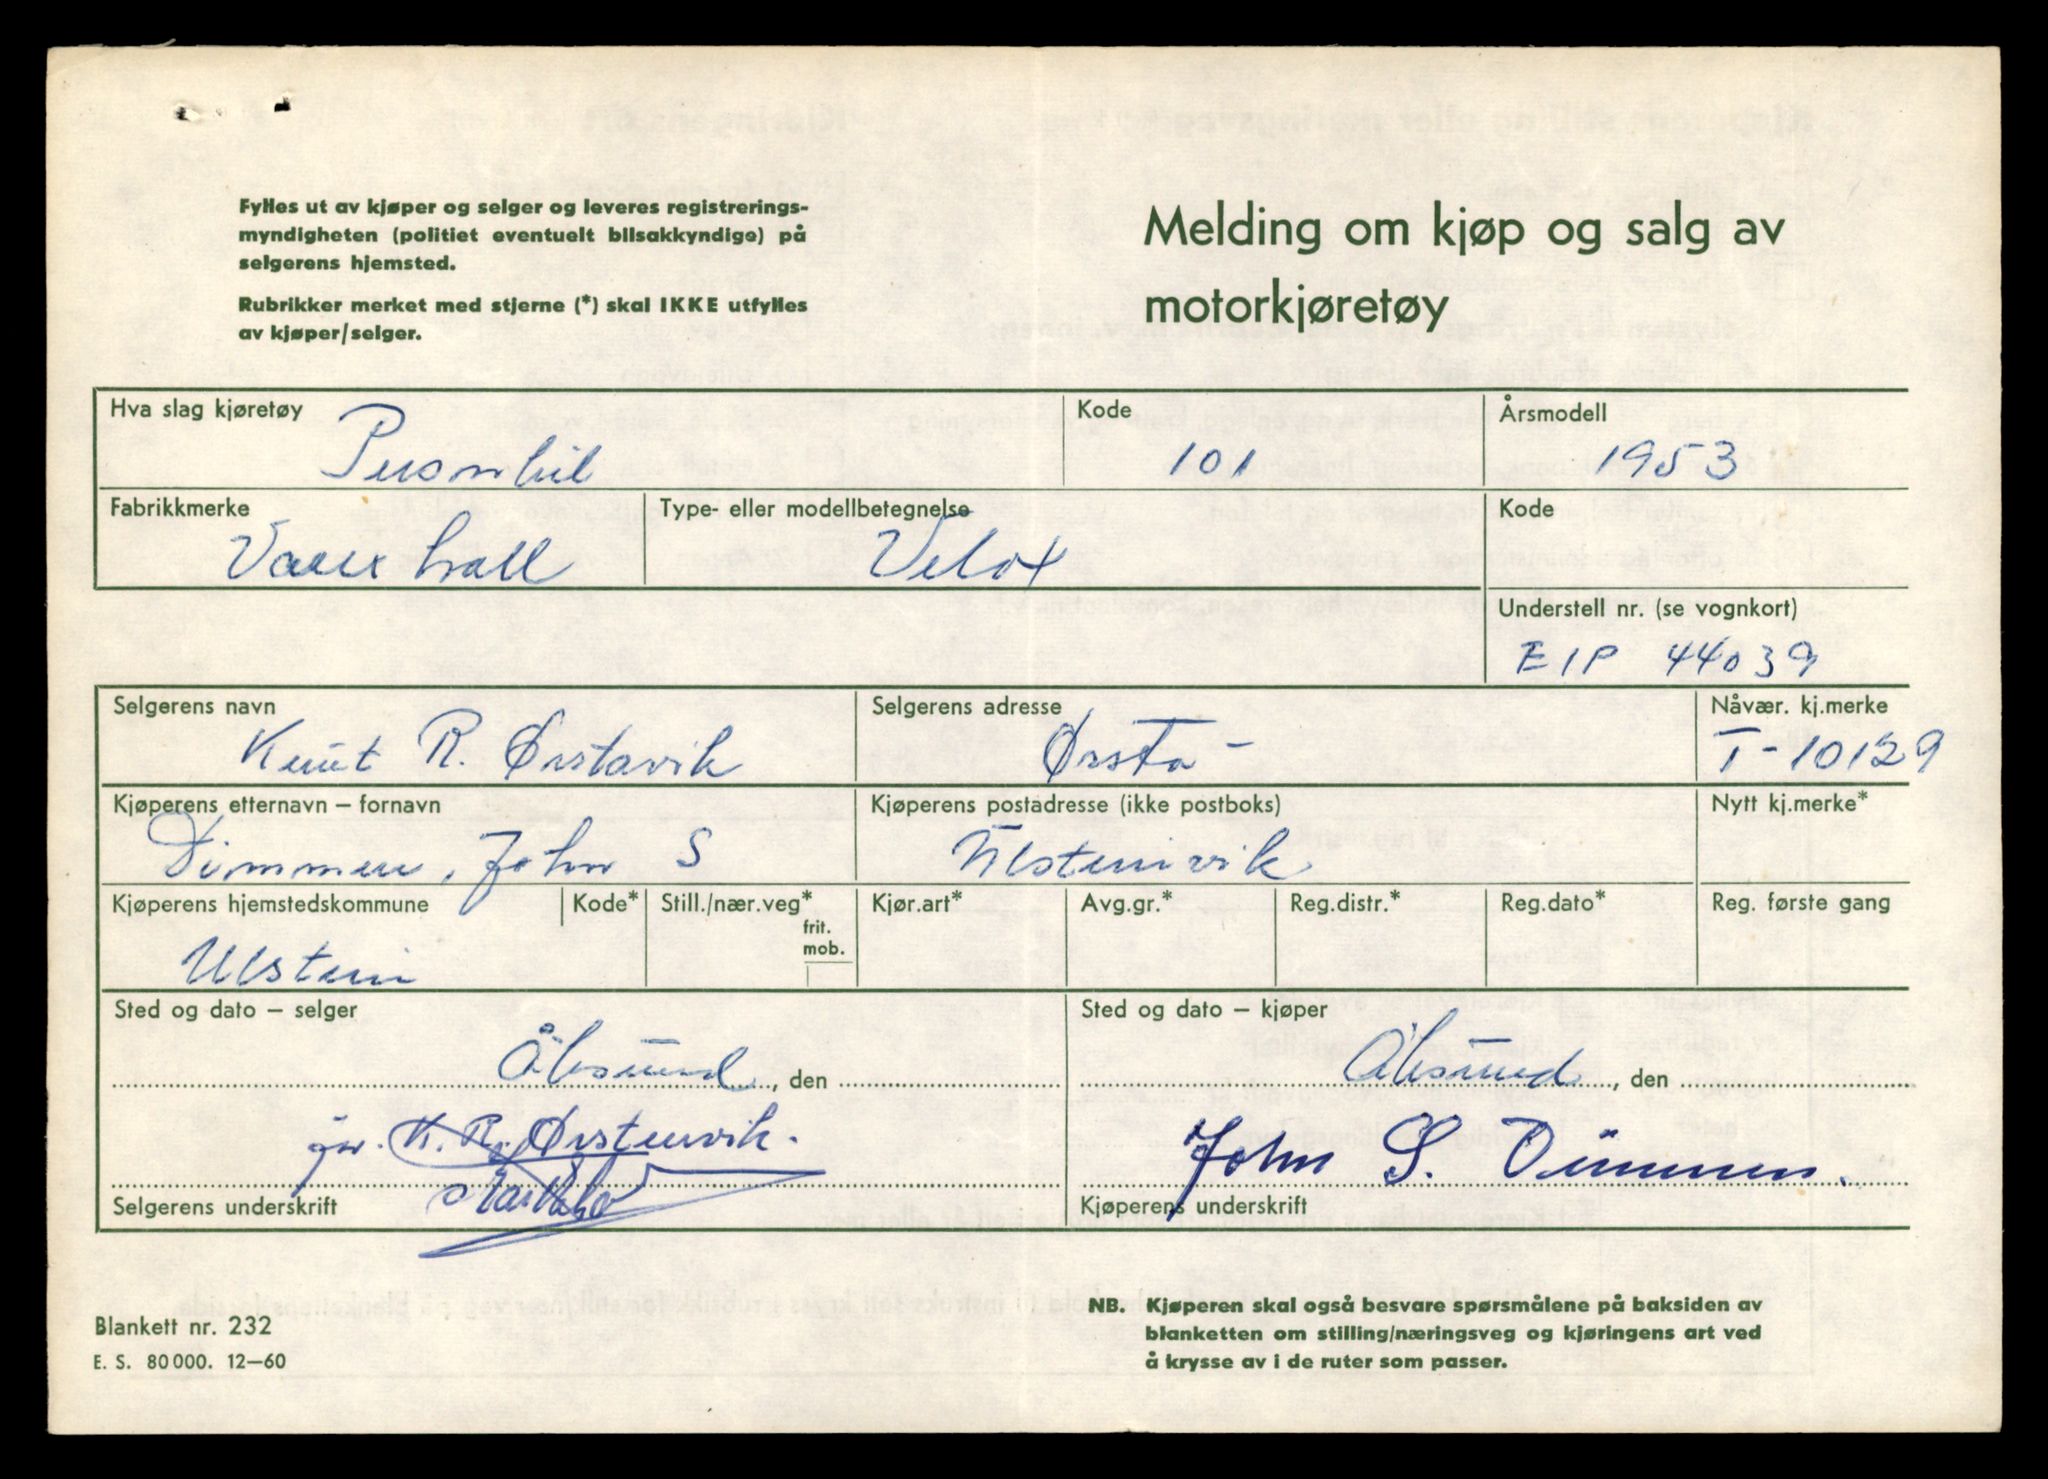 Fylles ut av kjøper og selger og leveres registrerings-
myndigheten (politiet eventuelt bilsakkyndige) på
selgerens hjemsted.
Rubrikker merket med stjerne (*) skal IKKE utfylles
av kjøper/selger.
Melding om kjøp og salg av
motorkjøretøy
Hva slag kjøretøy Kode Årsmodell
Personbil 101 1953
Fabrikkmerke Type- eller modellbetegnelse Kode
Vauxhall Velox
Understell nr. (se vognkort)
EIP 44039
Selgerens navn Selgerens adresse Nåvær. kj.merke
Knut R. Ørstavik Ørsta - T-10129
Kjøperens etternavn – fornavn Kjøperens postadresse (ikke postboks) Nytt kj.merke*
Dimmen, John S Ulsteinvik
Kjøperens hjemstedskommune Kode* Still./nær.veg* Kjør.art* Avg.gr.* Reg.distr.* Reg.dato* Reg. første gang
frit.
mob.
Ulstein
Sted og dato – selger Sted og dato – kjøper
Ålesund, den Ålesund, den
K. R. Ørstenvik. John S. Dimmen.
Selgerens underskrift Kjøperens underskrift
Blankett nr. 232
E. S. 80 000. 12–60
NB. Kjøperen skal også besvare spørsmålene på baksiden av
blanketten om stilling/næringsveg og kjøringens art ved
å krysse av i de ruter som passer.